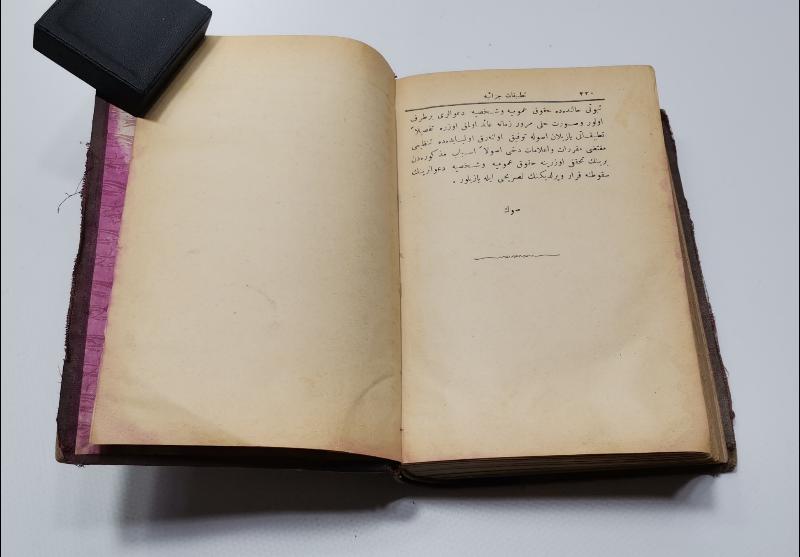 ٤٣٠ تطبیقات جزائیه
ثبوتی حالنده‌ده حقوق عمومیه وشخصیه دعوالری برطرف
اولور وصورت حلی مرور زمانه عائد اولمق اوزره تفصیلاً
تطبیقاتی یازیلان اصوله توفیق اولنه‌رق اولبابده‌ده تنظیمی
مقتضی مقررات واعلامات دخی اصولاً اسباب مذکوره‌دن
برینك تحقق اوزرینه حقوق عمومیه وشخصیه دعوالرینك
سقوطنه قرار ویرلدیکنك تصریحی ایله یازیلور .
صوك